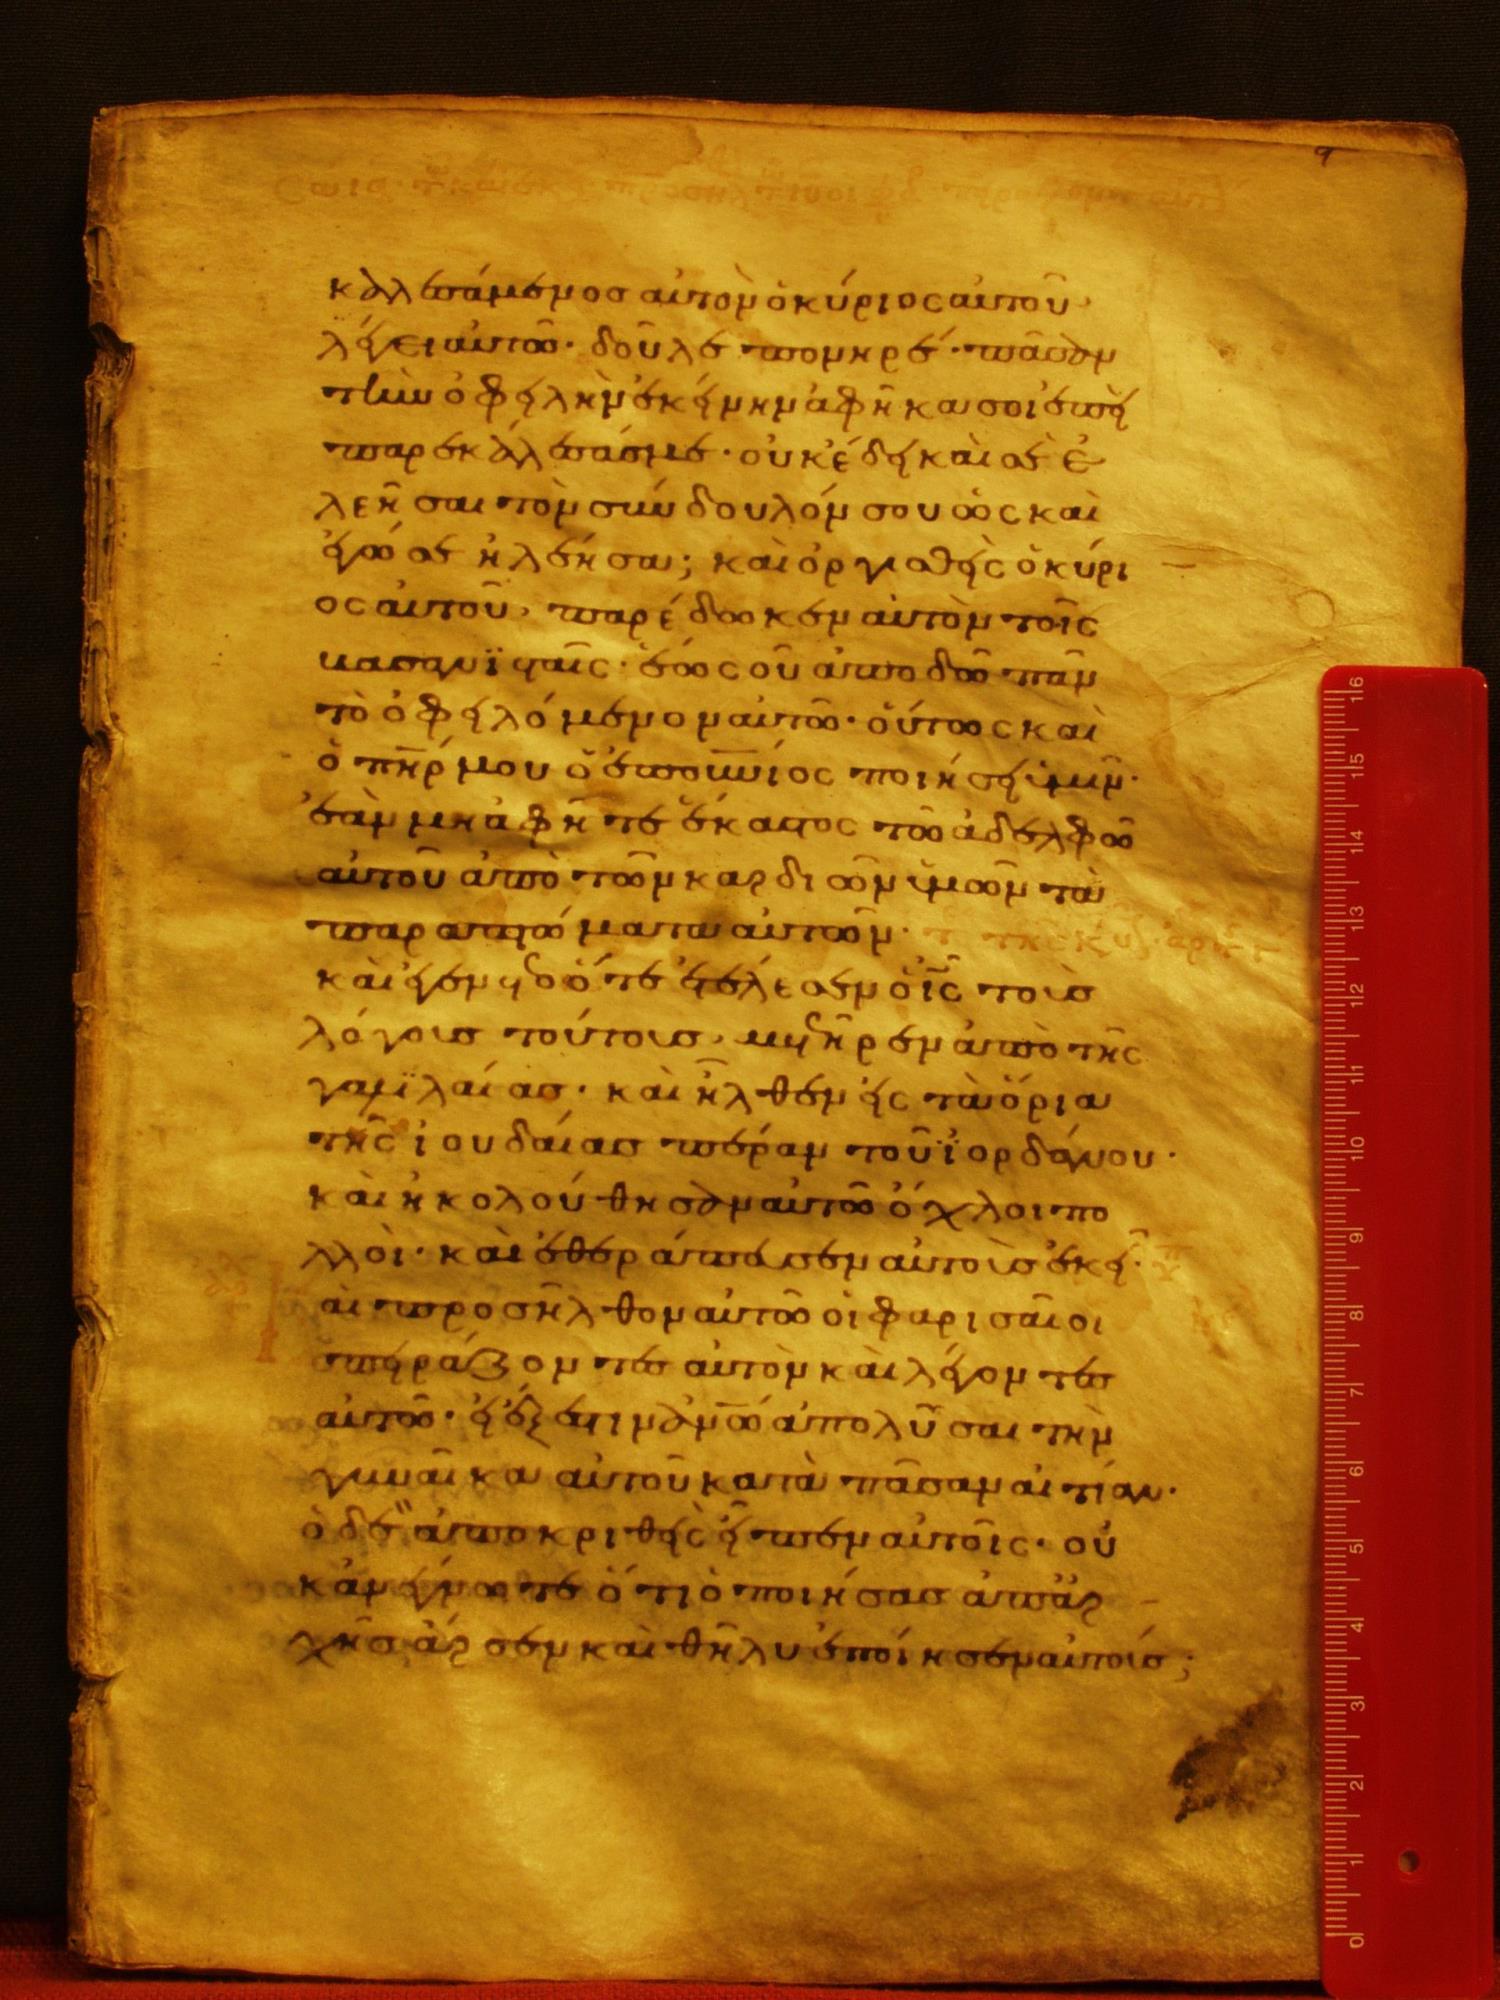 9
καλεσάμενοσ αυτὸν ὁ κύριος αυτοῦ·
λέγει αυτῶ· δοῦλε πονηρέ· πᾶσαν
τὴν ὀφειλὴν ἐκείνην ἀφῆκα σοι ἐπεὶ
παρεκάλεσάσ με· οὐκ έδει καὶ σὲ ἐ
λεῆσαι τὸν σύνδουλόν σου ὡς καὶ
ἐγώ σε ἠλέησα; καὶ ὀργισθεὶς ὁ κύρι
ος αυτοῦ, παρέδωκεν αὐτὸν τοῖς
βασανϊσταῖς· ἕως οῦ ἀποδῶ πᾶν
τὸ ὀφειλόμενον αυτῶ· ὁύτως καὶ
ὁ πη̅ρ μου ὁ ἐπου̅νιος ποιήσει ὑμῖν·
ἐὰν μη ἀφῆτε ἕκαστος τῶ ἀδελφῶ
αὐτοῦ ἀπὸ τῶν καρδιῶν ὑμῶν τὰ
παραπτώματα αὐτῶν·
καὶ ἐγένετο ὅτε ἐτέλεσεν ὁ ι̅ς̅ τοὺσ
λόγουσ τούτουσ, μετῆρεν ἀπὸ τῆς
γαλϊλαίασ· καὶ ῆλθεν εἰς τὰ ὅρια
τῆς ἰουδαίασ πέραν τοῦ ϊορδάνου·
καὶ ἠκολούθησαν αὐτῶ ὄχλοι πο
λλοὶ· καὶ ἐθεράπευσεν αυτοὺσ ἐκεῖ·
ὰι προσῆλθον αυτῶ ὁι φαρισαῖοι
πειράζοντεσ αυτὸν καὶ λέγοντεσ
αυτῶ· εἰ ἔξεστιν ἀν̅ω̅ ἀπολῦσαι τὴν
γυναῖκα αὐτοῦ κατὰ πᾶσαν αιτίαν·
ὁ δὲ ἀποκριθεὶς εῖπεν αὐτοῖς· οὐ
κ ἀνέγνωτε ὅτι ὁ ποιήσασ ἀπ ἀρ
χῆσ ἄρσεν καὶ θῆλυ ἐποίησεν αὐτούσ;
0 1 2 3 4 5 6 7 8 9 10 11 12 13 14 15 16